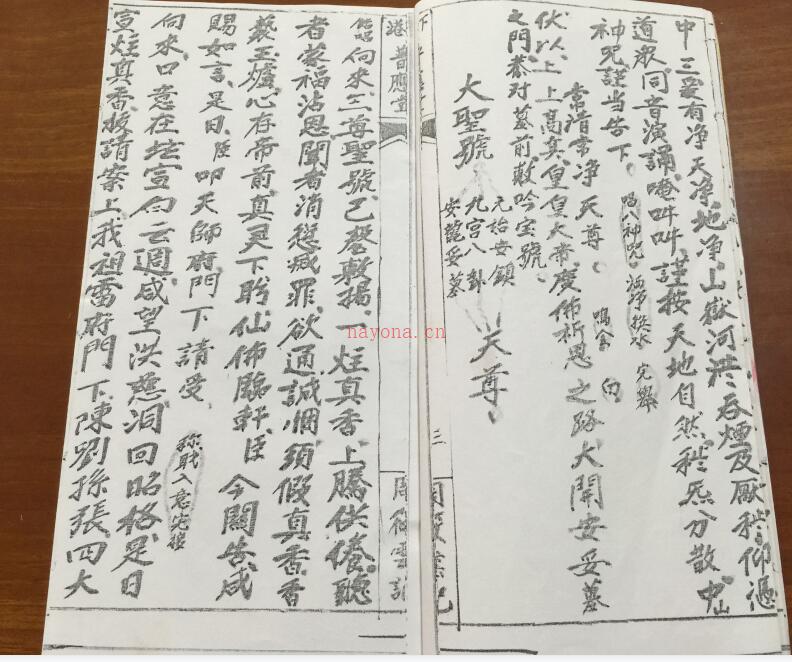 中三爱有净天净地净山嶽河洪吞煙及厭穢仰憑
道衆同音演誦唵吽吽謹按天地自然穢炁分散中山
神咒謹当告下 唱八神咒洒净换水完畢
常清常净天尊 鳴金 白
伏以上上高真皇皇天帝度佈祈恩之路大開安妥墓
之門恭对墓前敷吟宝號
大聖號 元始安鎮 九宫八卦 安龍妥墓 天尊
三
港普應堂
向来三尊聖號已磬敷揚一炷真香上騰供養聽
者蒙福沾恩聞者消愆滅罪欲通誠悃須假真香香
爇玉爐心存帝前真灵下盼仙佈臨軒臣今關告咸
賜如言是日臣叩天師府門下請受 称職入意完接
向来口意在坛宣白云週咸望洪慈洞回昭格是日
宣炷真香攀請案上我祖雷府門下陳劉孫張四大
nayona.cn